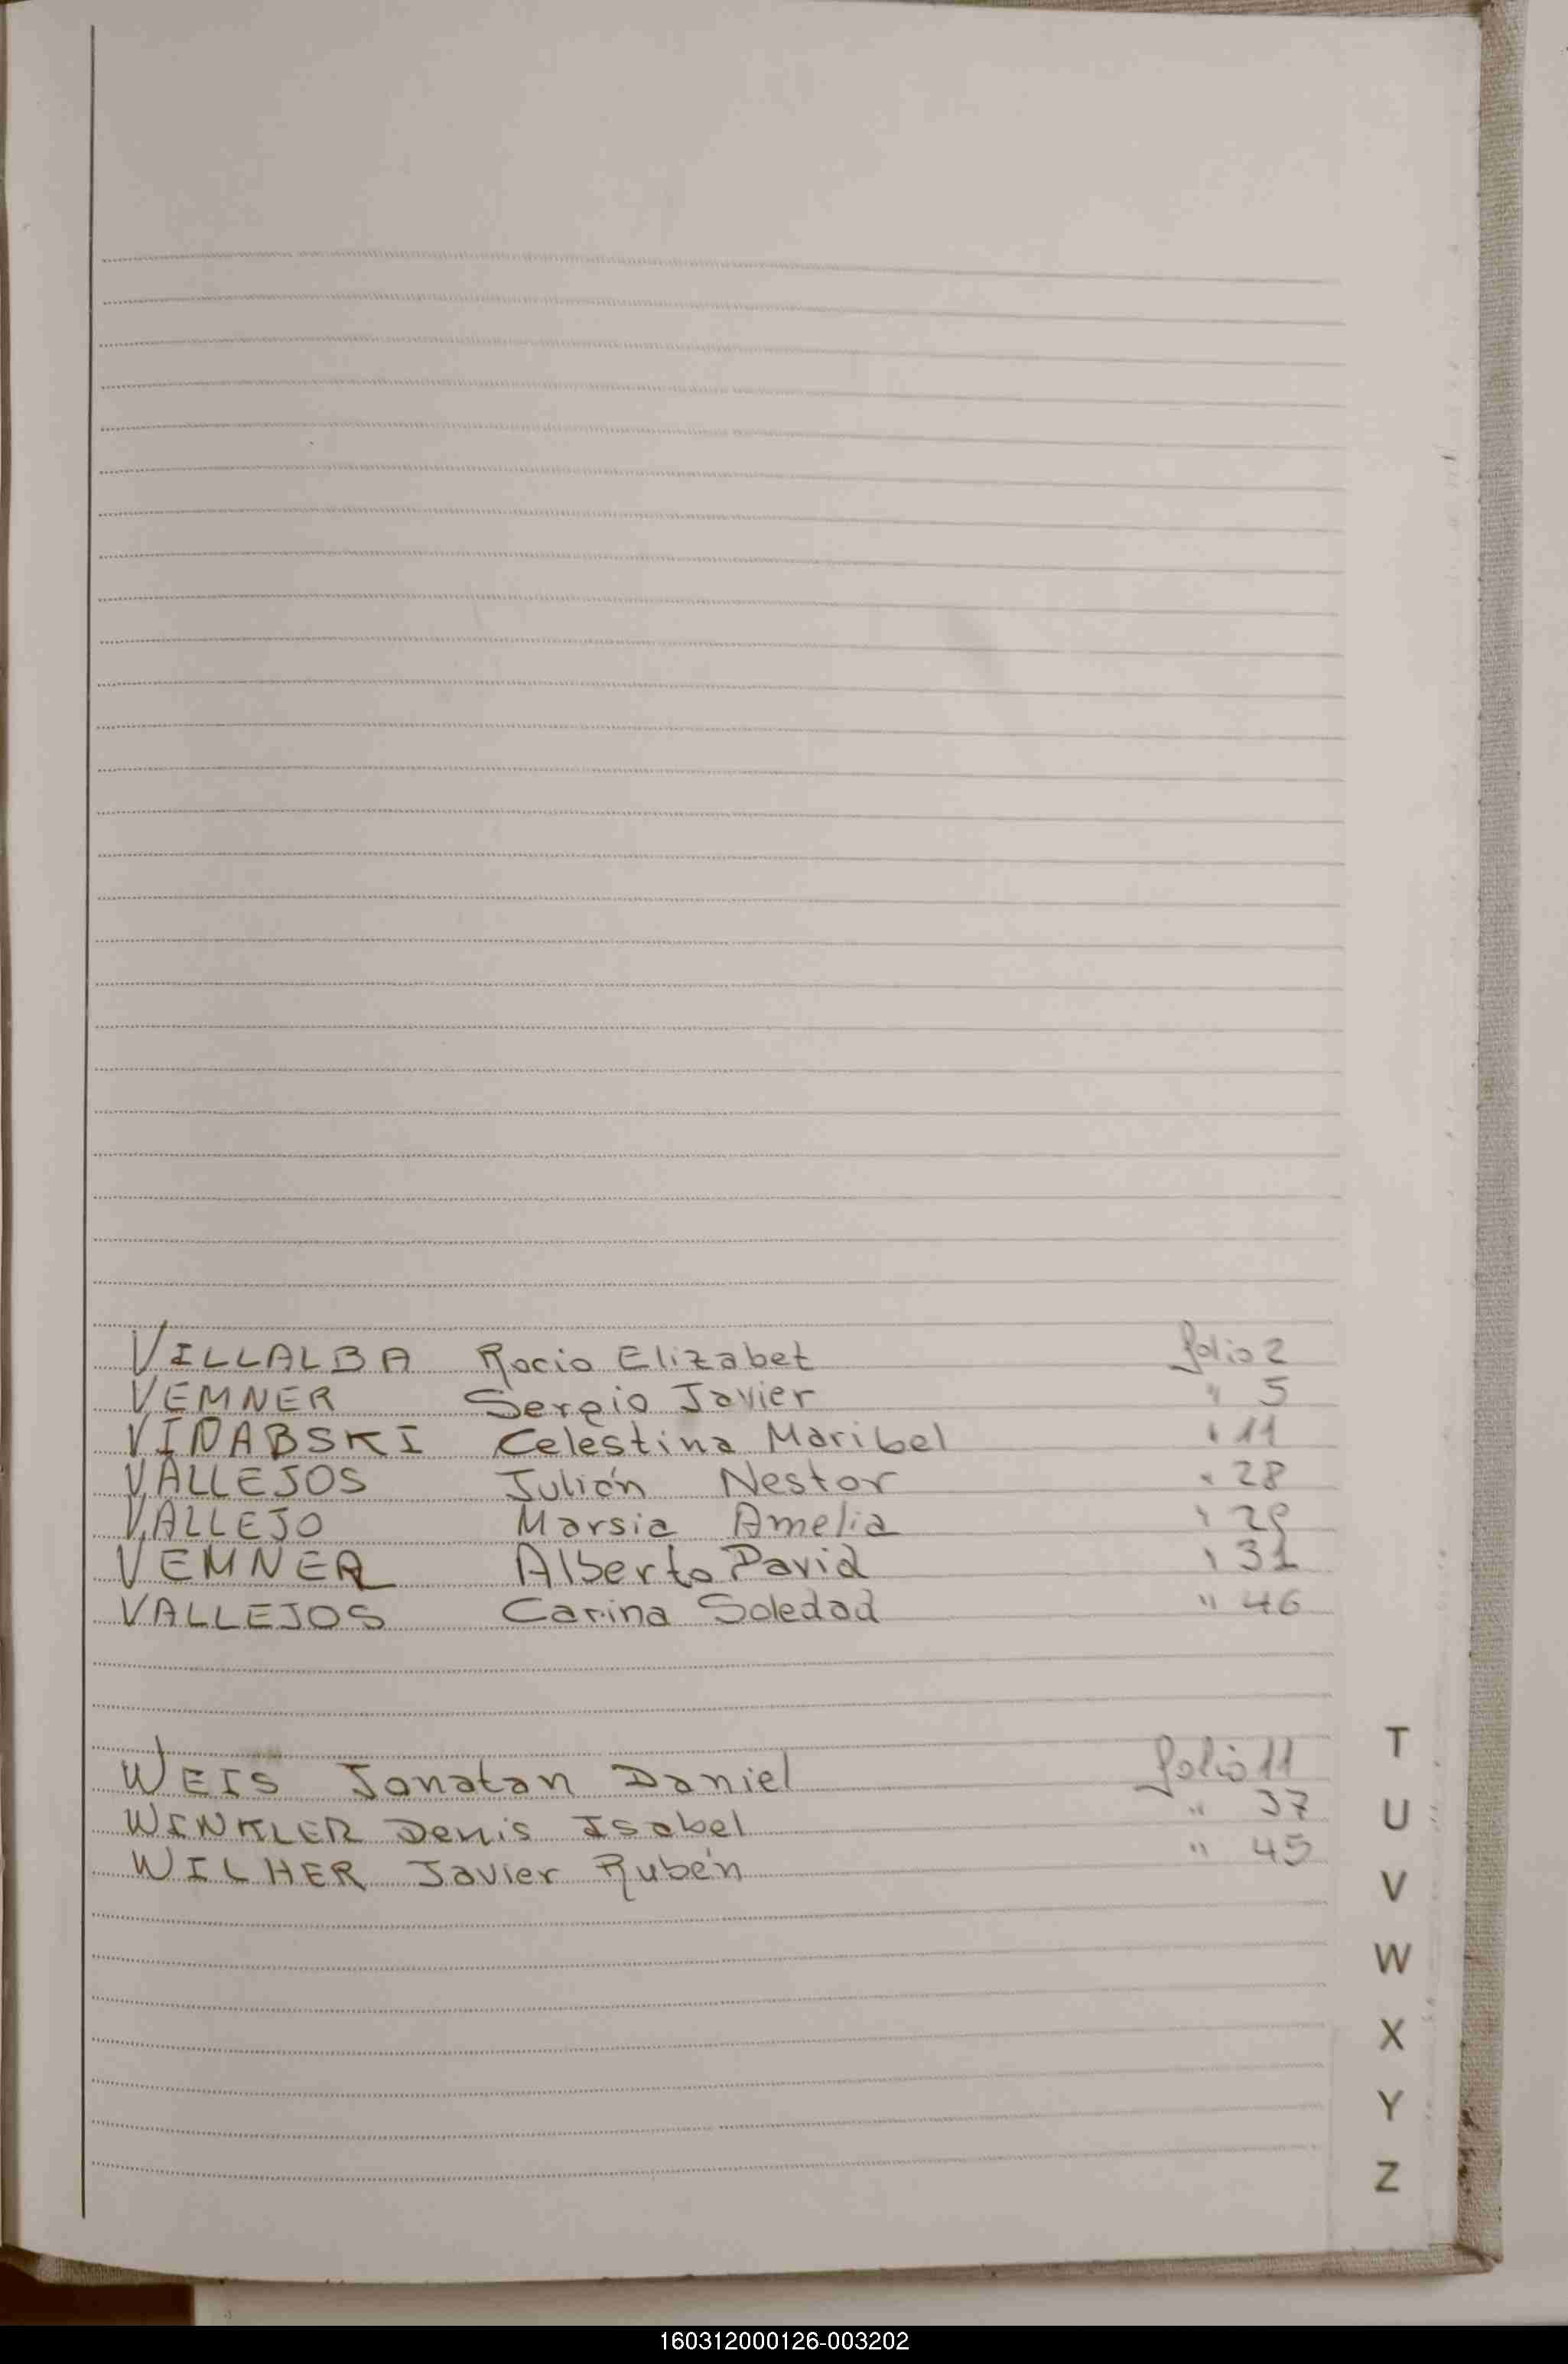 VILLALBA Rocio Elizabet folio 2
VEMNER Sergio Javier " 5
VINABSKI Celestina Maribel " 11
VALLEJOS Julián Nestor " 28
VALLEJO Marsia Amelia " 29
VEMNER Alberto David " 31
VALLEJOS Carina Soledad " 46
WEIS Jonatan Daniel folio 11
WINKLER Denis Isabel " 37
WILHER Javier Rubén " 45
T
U
V
W
X
Y
Z
160312000126-003202